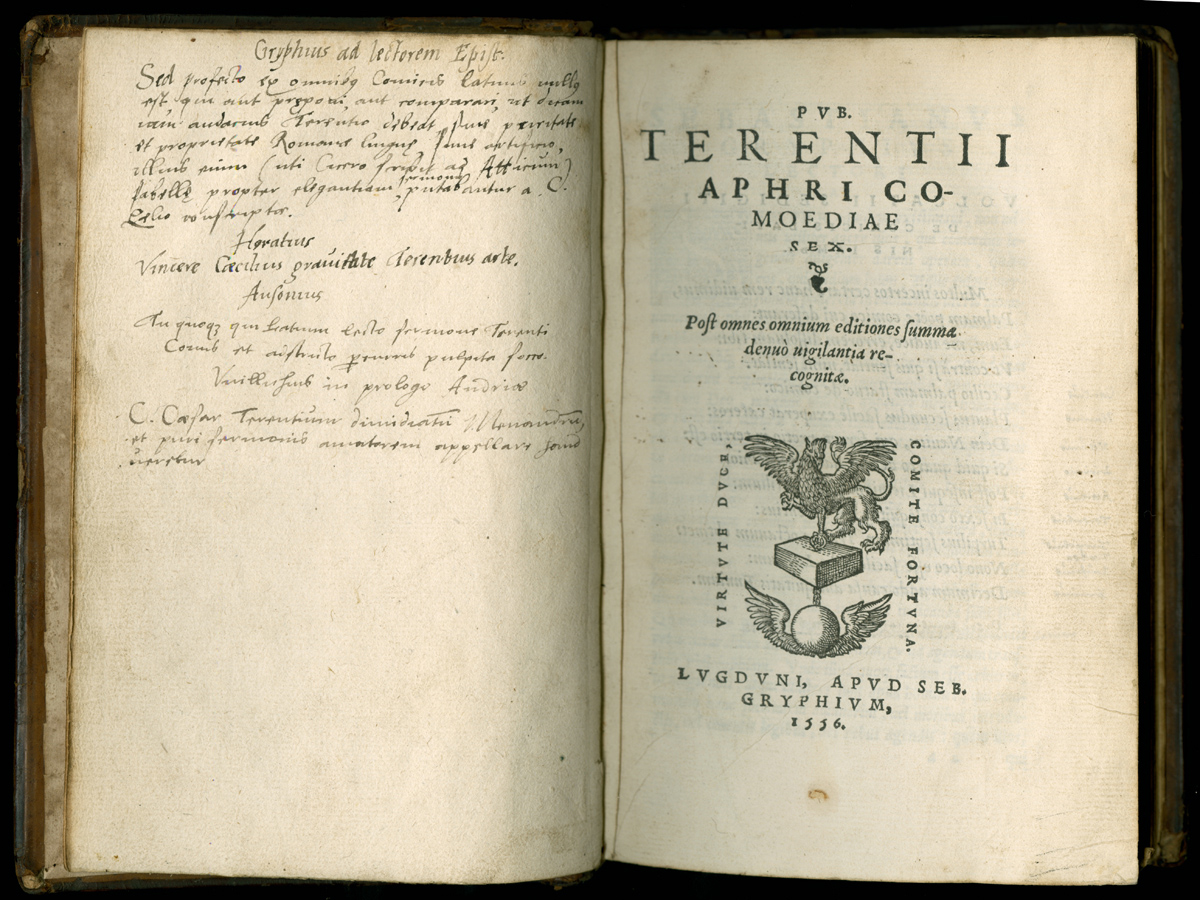 Gryphius ad lectorem Epist.
Sed profecto ex omnibus Comicis Latinis nullus
est qui aut præponi, aut comparari, ut dicam
iam audacius Terentio debeat, sive puritate
et proprietate Romanæ linguæ, sive artificio,
illius enim (uti Cicero scribit ad Atticum)
fabellæ propter elegantiam sermonis putabantur a C.
Lelio conscriptæ.
Horatius
Vincere Cæcilius gravitate Terentius arte.
Ausonius
Tu quoque qui Latium lecto sermone Terenti
Comis et adstricto percurris pulpita socco.
in prologo Andriæ
C. Cæsar Terentium dimidiatū Menandrū,
et puri sermonis amatorem appellare
veretur
PVB.
TERENTII
APHRI CO-
MOEDIAE
SEX.
Post omnes omnium editiones summa
denuò uigilantia re-
cognitæ.
VIRTVTE DVCE,
COMITE FORTVNA.
LVGDVNI, APVD SEB.
GRYPHIVM,
1556.